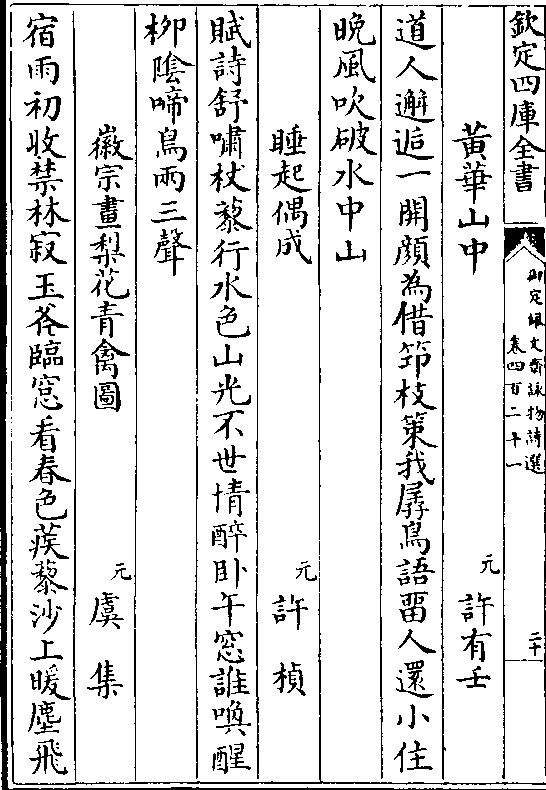 欽定四庫全書
御定佩文齋詠物詩選
卷四百二十一
二十
黃華山中
元 許有壬
道人邂逅一開顔為借筇枝策我孱鳥語畱人還小住
晚風吹破水中山
睡起偶成
元 許楨
賦詩舒嘯杖藜行水色山光不世情醉卧午窓誰喚醒
柳陰啼鳥兩三聲
徽宗畫梨花青禽圖
元 虞集
宿雨初收禁林寂玉容臨窓看春色蒺藜沙上暖塵飛